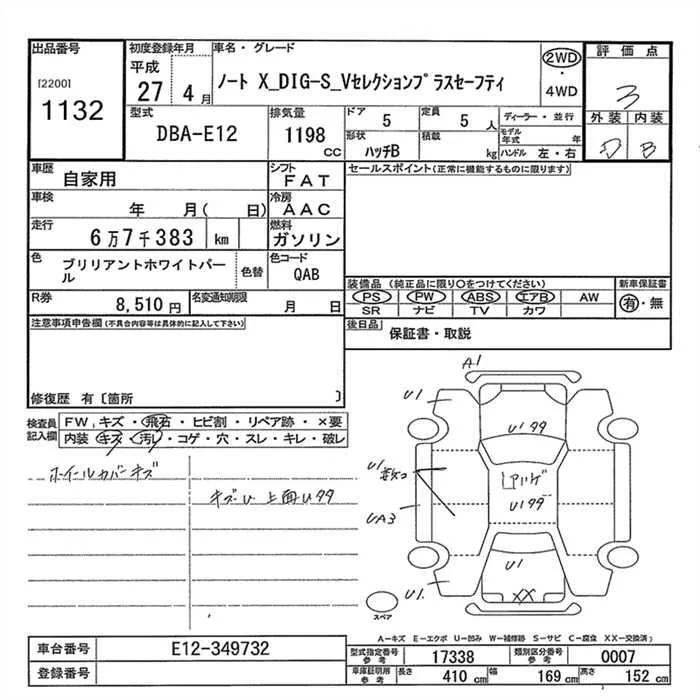 出品番号
[2200]
1132
初度登録年月
平成
27 4月
車名・グレード
ノート X_DIG-S_Vセレクションプラスセーフティ
2WD
・
4WD
評価点
3
外装 内装
D B
型式
DBA-E12
排気量
1198
CC
ドア
5
定員
5 人
形状
ハッチB
積載
kg
ディーラー・並行
モデル年式 年
ハンドル 左・右
車歴
自家用
シフト
FAT
車検
年 月( 日)
冷房
AAC
走行
6万7千383 km
燃料
ガソリン
色
ブリリアントホワイトパール
色替
色コード
QAB
R券
8,510円
名変通知期限
月 日
セールスポイント(正常に機能するものに限ります)
装備品(純正品に限り○をつけてください)
PS PW ABS エアB AW
SR ナビ TV カワ
新車保証書
有・無
後日品
保証書・取説
注意事項申告欄(不具合内容等は具体的に記入して下さい)
修復歴 有〔箇所 〕
検査員
記入欄
FW, キズ・飛石・ヒビ割・リペア跡・×要
内装 キズ・汚レ・コゲ・穴・スレ・キレ・破レ
ホイールカバーキズ
キズU 上面Uタタ
A1
U1
U1タタ
U1
UA3
U1タタ
U1
XX
U1.
スペア
A-キズ E-エクボ U-凹み W-補修跡 S-サビ C-腐食 XX-交換済)
車台番号
E12-349732
登録番号
型式指定番号
参考
17338
類別区分番号
参考
0007
車庫証明用
参考
長さ
410 cm
幅
169 cm
高さ
152 cm